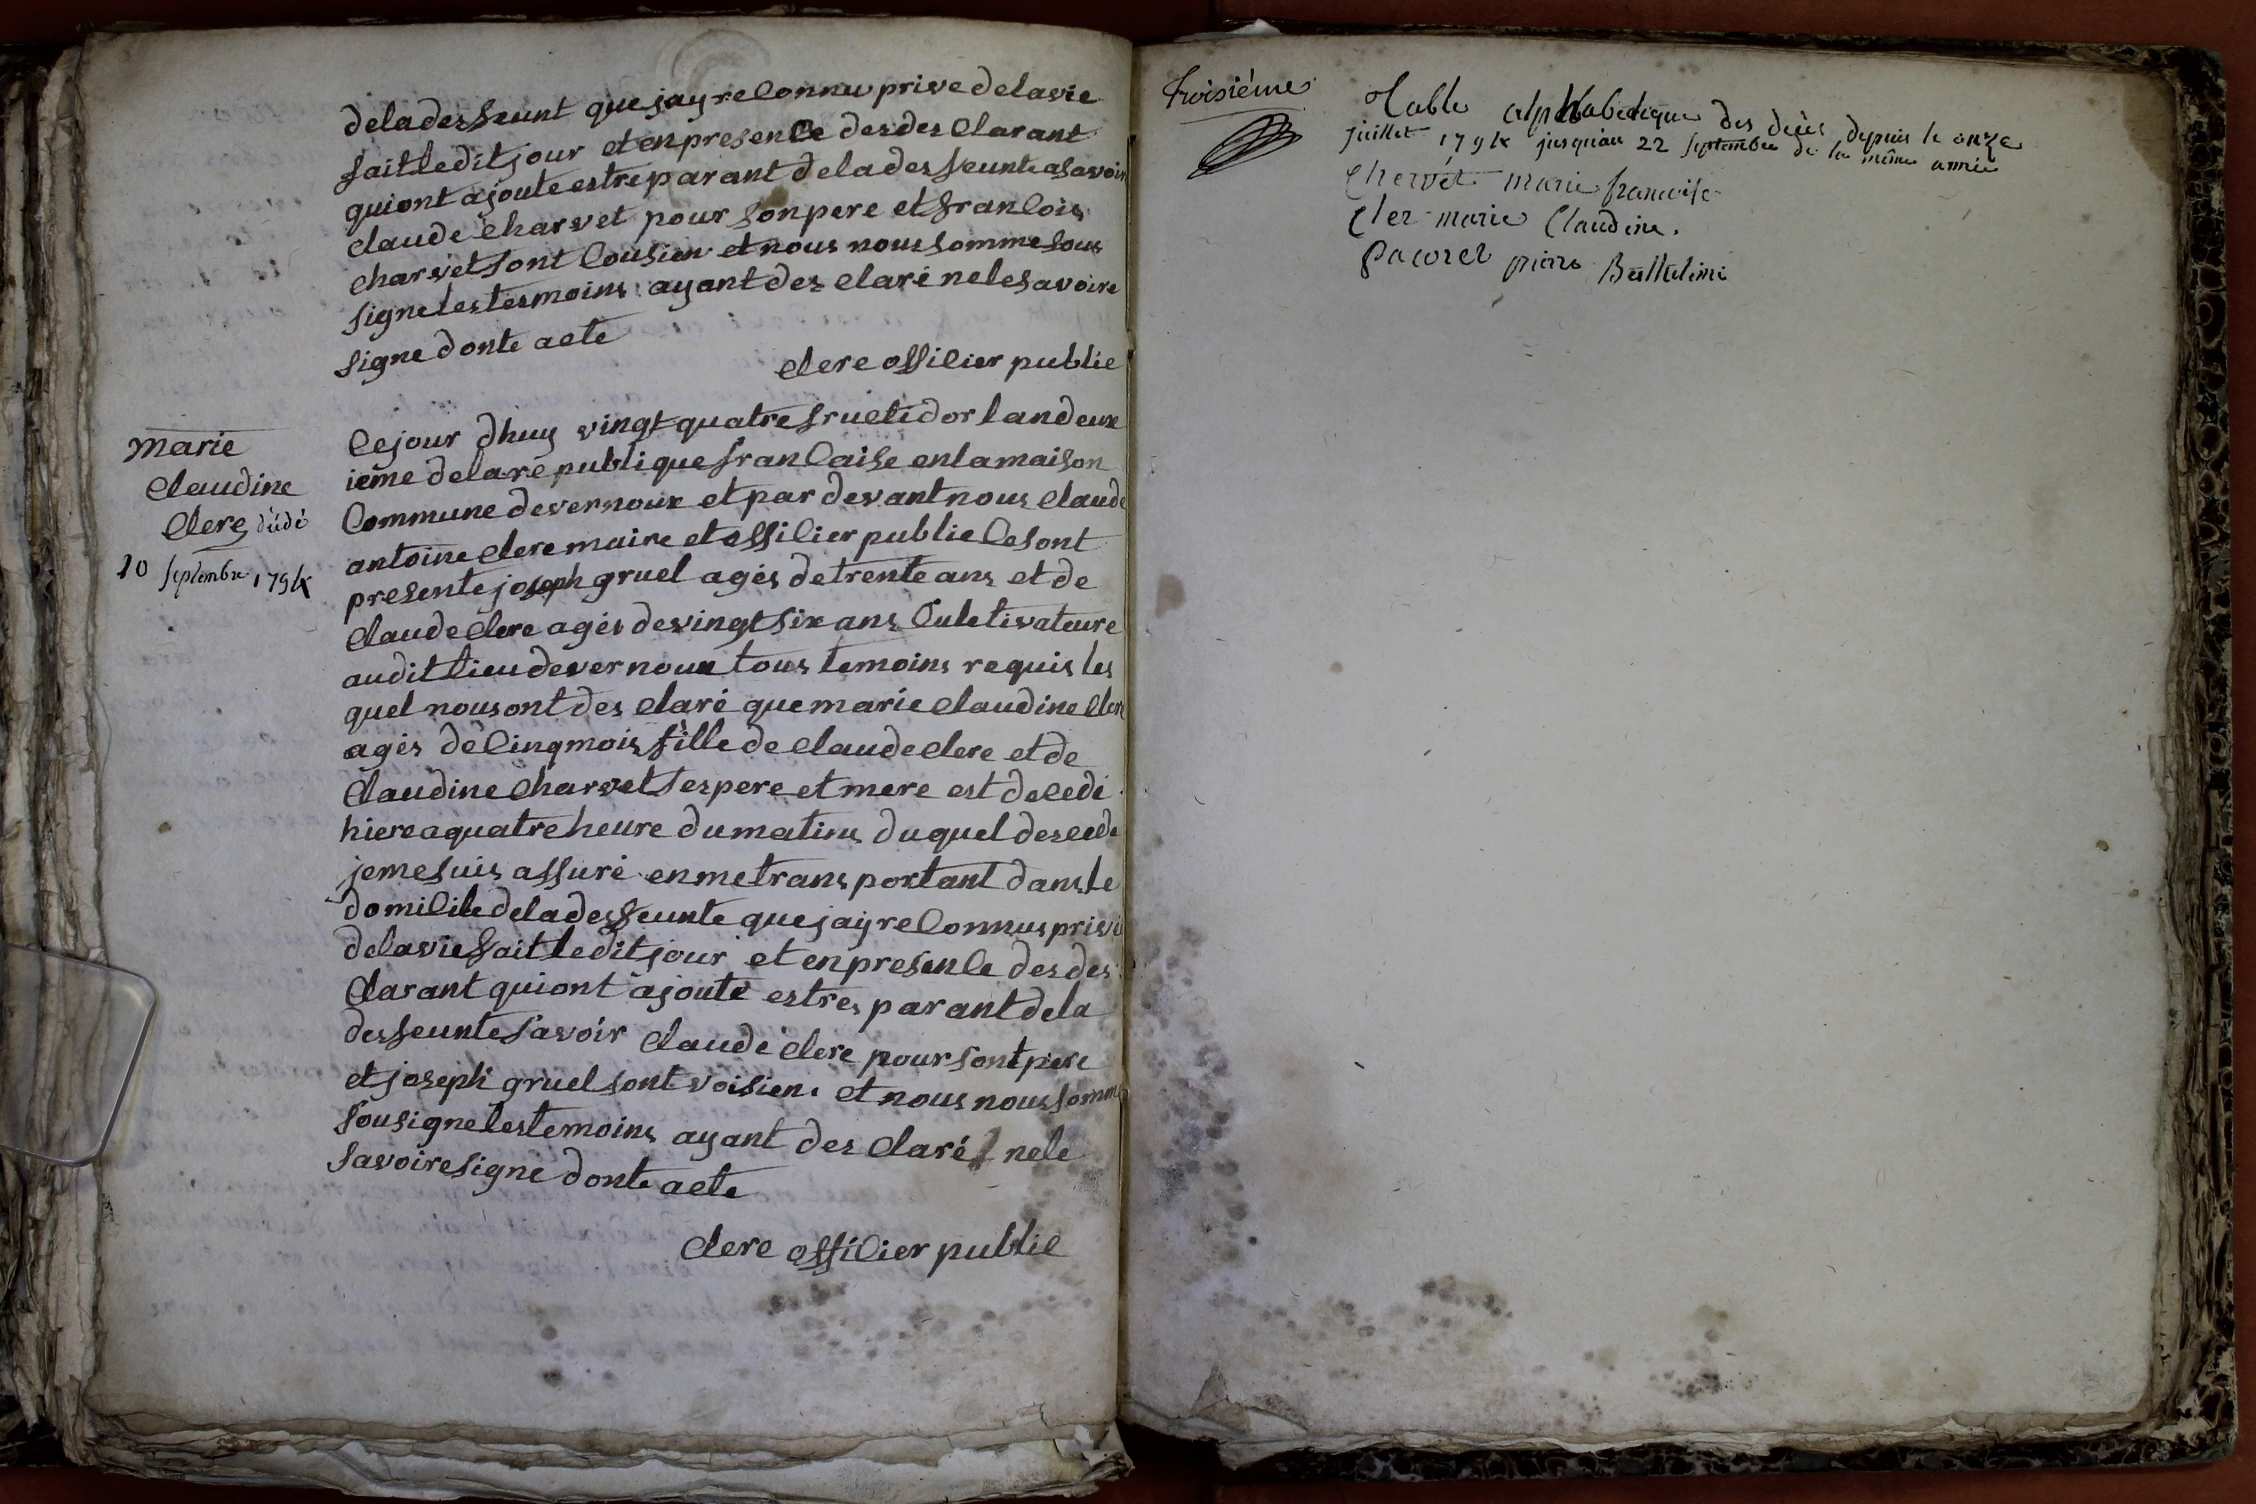 deladesseunt que jay reconnu prive delavie
fait ledit jour et en presence des des clarant
qui ont ajouté estre parant de la des feunte asavoir
claude charvet pour son pere et francois
charvet sont cousien et nous nous somme sous
signe les tesmoins ayant des claré ne le savoire
signe donte acte
clere officier public
marie
claudine
clere
10 septembre 1794
Ce jour dhuy vingt quatre fructidor lan deux
ieme de la republique francaise en la maison
commune de vernoux et par devant nous claude
antoine clere maire et officier public ce sont
presente joseph gruel agés de trente ans et de
claude clere agés de vingt six ans culetivateure
audit lieu de vernoux tous temoins requis les
quel nous ont des claré que marie claudine clere
agés de cinq mois fille de claude clere et de
claudine charvet ses pere et mere est decedé
hiere a quatre heure du matins du quel des cede
je me suis assuré en me trans portant dans le
domicile de la des feunte que jay reconnus privé
de la vie fait ledit jour et en presence des des
clarant qui ont ajouté estres parant de la
des feunte savoir claude clere pour sont pere
et joseph gruel sont voisien et nous nous somme
sousigne les temoins ayant des claré ne le
savoire signé donte acte
clere officier public
troisième
Table alphabetique des décès depuis le onze
juillet 1794 jusqu'au 22 septembre de la même année
Chervet marie francoise
Cler marie Claudine.
pacoret pierre Barthelimi